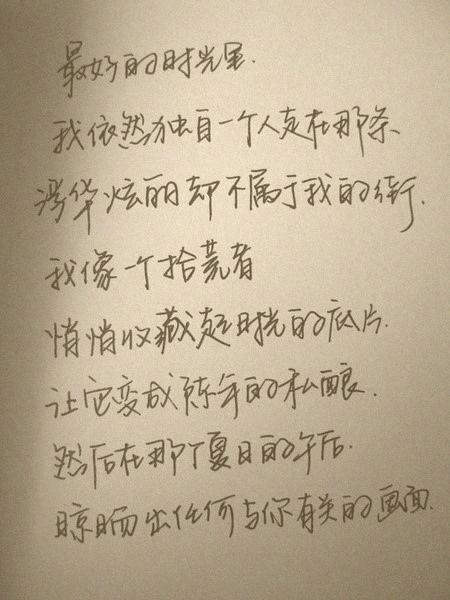 最好的时光里.
我依然独自一个人走在那条、
浮华炫丽却不属于我的街.
我像一个拾荒者
悄悄收藏起时光的底片.
让它变成陈年的私酿.
然后在那个夏日的午后.
晾晒出任何与你有关的画面.